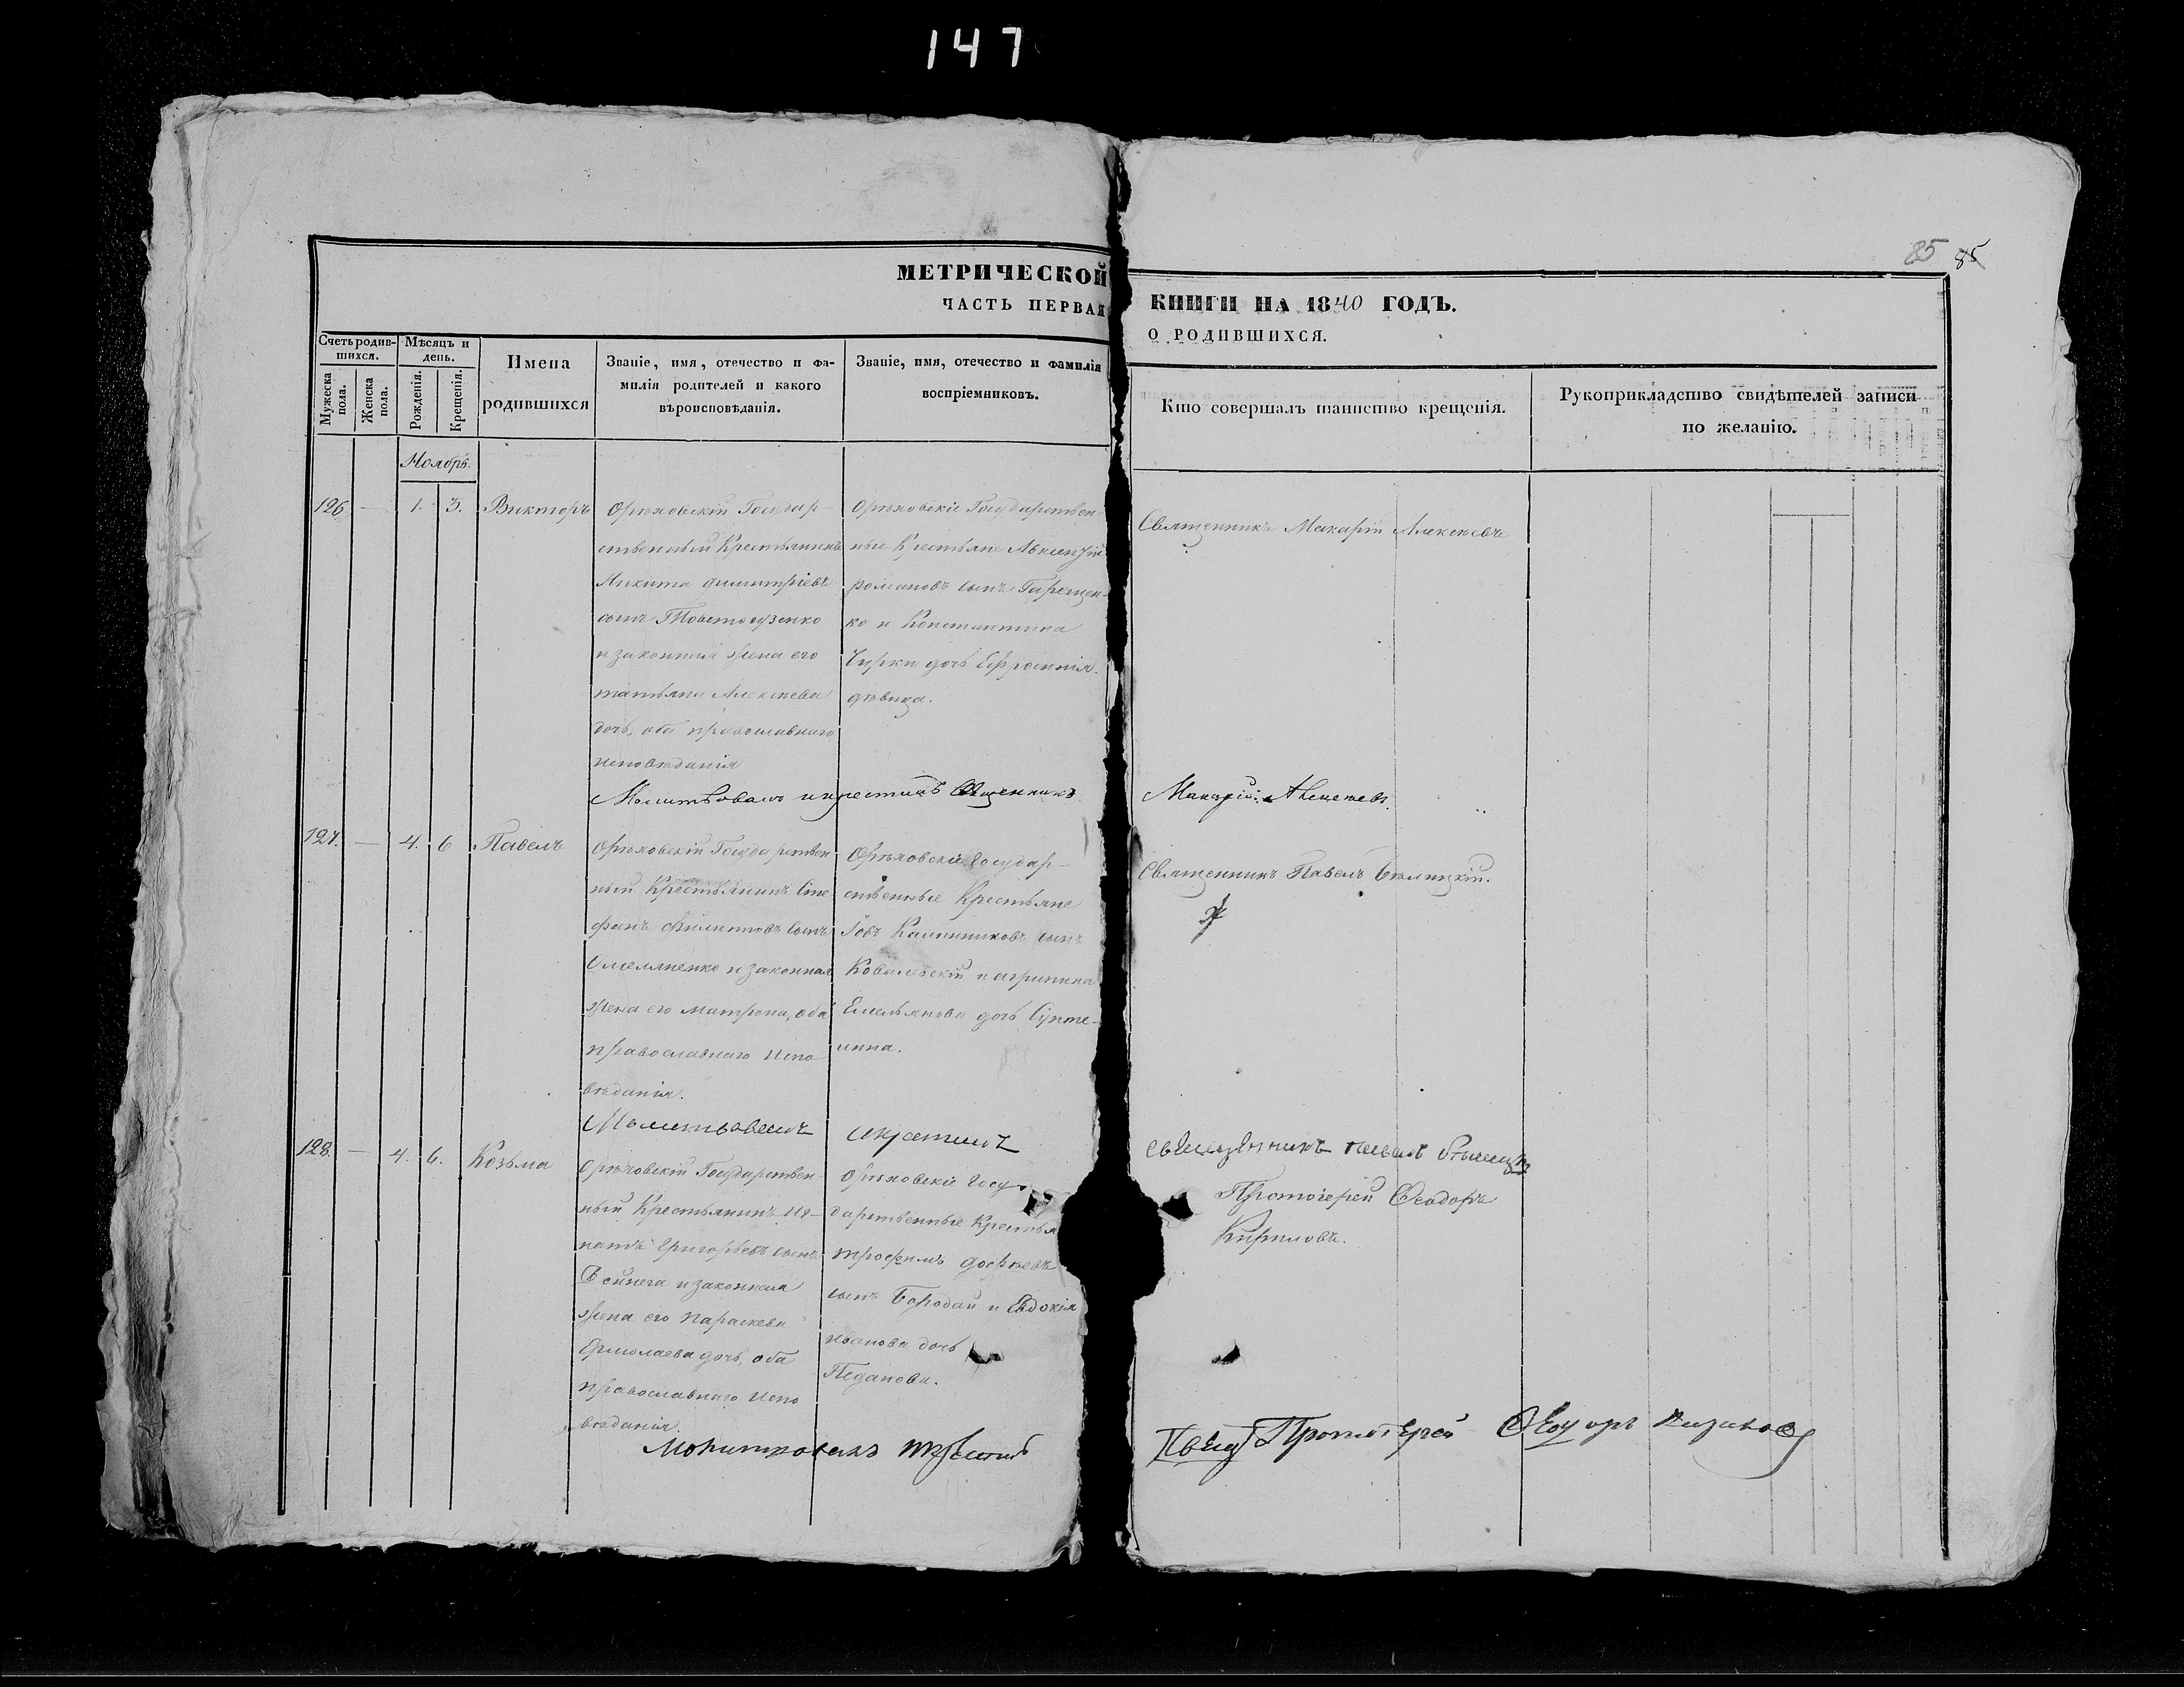 147
85 85
МЕТРИЧЕСКОЙ КНИГИ НА 1840 ГОДЪ.
ЧАСТЬ ПЕРВАЯ О РОДИВШИХСЯ.
Счетъ родив-
шихся.
Мужеска
пола.
Женска
пола.
Мѣсяцъ и
день.
Рожденія.
Крещенія.
Имена
родившихся
Званіе, имя, отечество и фа-
милія родителей и какого
вѣроисповѣданія.
Званіе, имя, отечество и фамилія
воспріемниковъ.
Кто совершалъ таинство крещенія.
Рукоприкладство свидѣтелей записи
по желанію.
Ноябрь.
126 — 1. 3. Викторъ
Орѣховскій Государ-
ственный Крестьянинъ
Никита Димитріевъ
сынъ
и законная жена его
татьяна Алексѣева
дочь, оба православнаго
исповѣданія
Орѣховскіе Государствен-
ные Крестьяне
романовъ сынъ
ко и Константина
Чирки дочь Ефросинія
дѣвица.
Священникъ Макарій Алексѣевъ
Молитвовалъ и крестилъ Священникъ Макарій Алексѣевъ.
127. — 4. 6 Павелъ
Орѣховскій Государствен-
ный Крестьянинъ Сте
фанъ Филиповъ сынъ
Омеляненко и законная
жена его Матрона, оба
православнаго Испо
вѣданія.
Орѣховскіе Государ-
ственные Крестьяне
Іовъ Калинниковъ сынъ
Ковалевскій и агрипина
Емельянова дочь
Священникъ Павелъ Бѣлицкій.
Молитвовалъ и крестилъ священникъ павелъ
128. — 4. 6. Козьма
Орѣховскій Государствен-
ный Крестьянинъ Иг-
натъ Григорьевъ сынъ
и законная
жена его Параскева
Ермолаева дочь, оба
православнаго Испо
вѣданія.
Орѣховскіе Госу-
дарственные Крестья
трофимъ дофѣевъ
сынъ Бородай и Евдокія
иванова дочь
Педанова.
Протоіерей Феодоръ
Кириловъ.
Молитвовалъ и крестилъ Протоіерей Феодоръ